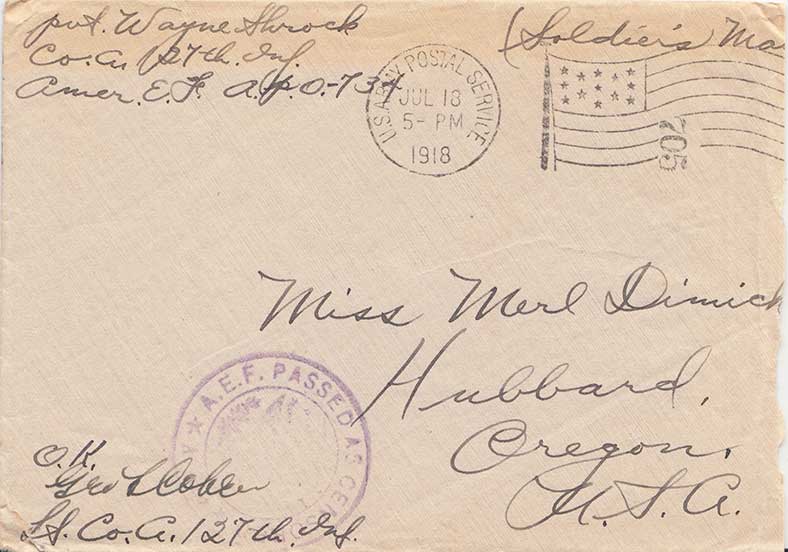 pvt. Wayne Shrock
Co. A. 127th. Inf.
Amer. E. F. A.P.O.-734
(Soldier's Ma
U.S. ARMY POSTAL SERVICE
JUL 18
5- PM
1918
702
Miss Merl Dimick
Hubbard,
Oregon.
U.S.A.
A.E.F. PASSED AS CEN
O.K.
Geo L
Lt. Co. A. 127th. Inf.